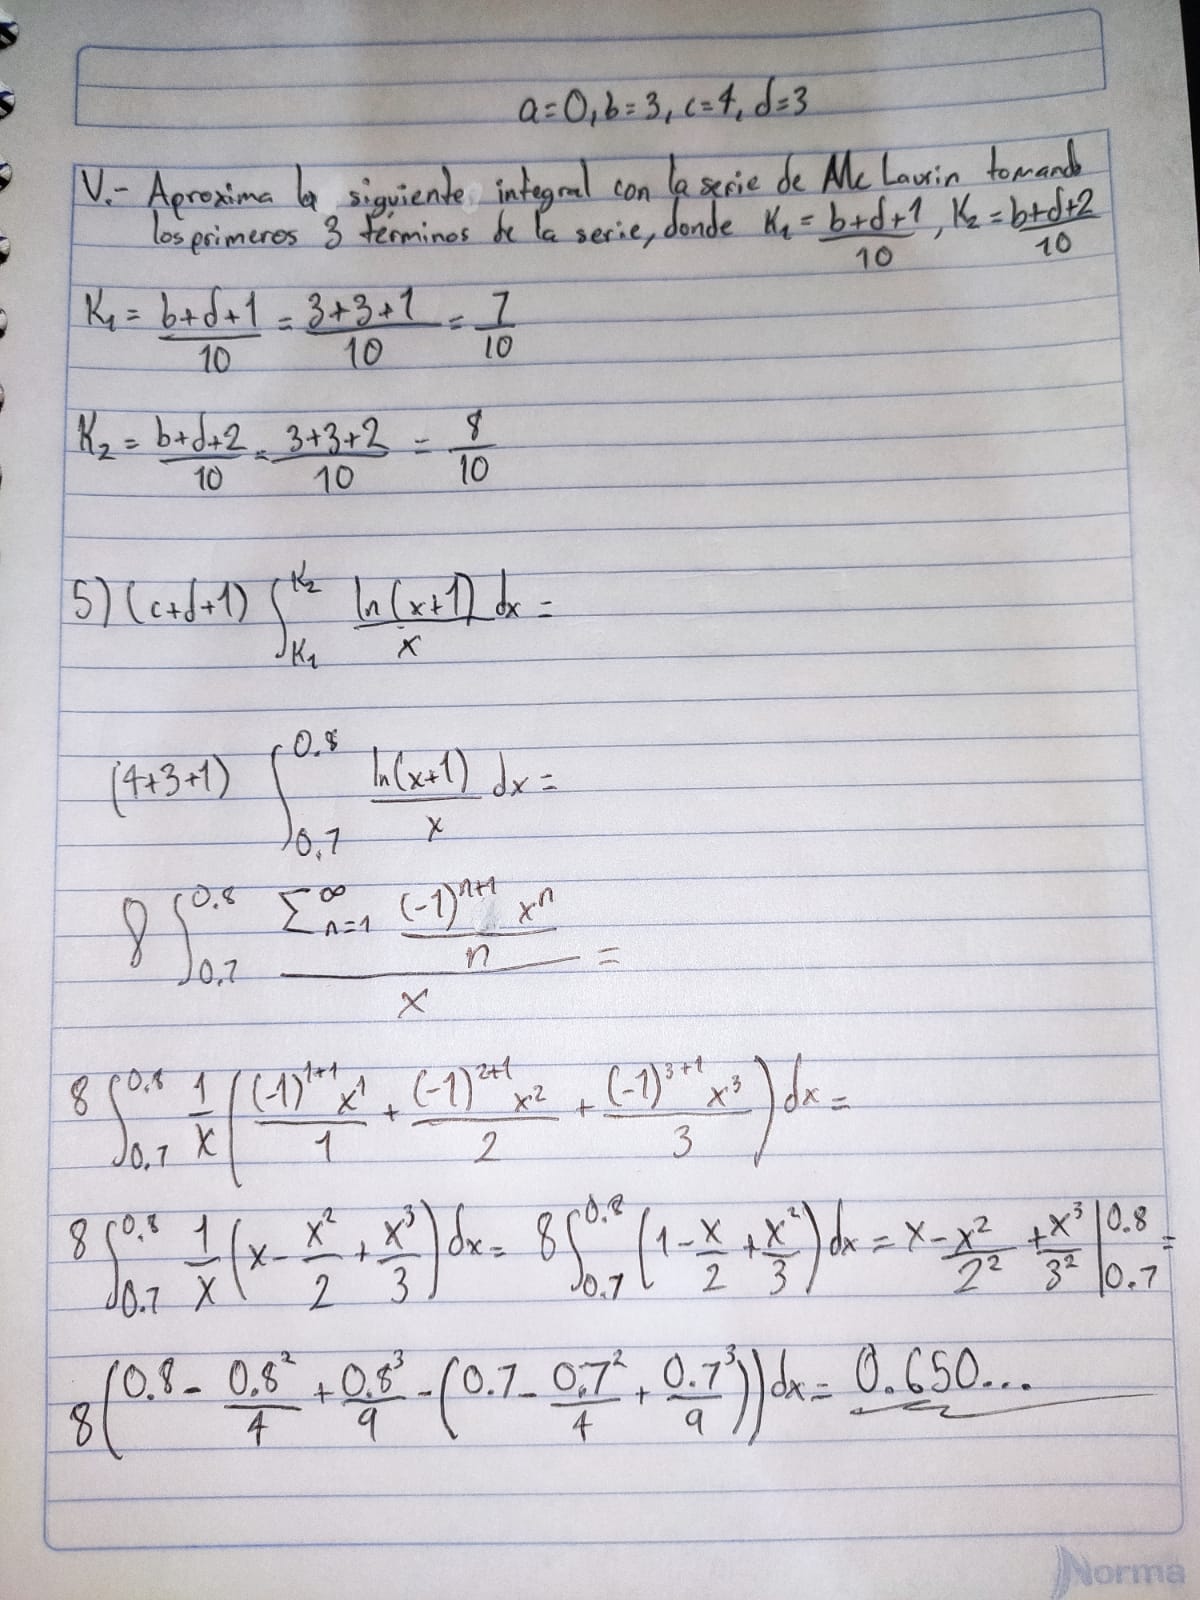 a=0, b=3, c=4, d=3
V.- Aproxima la siguiente integral con la serie de Mc Laurin tomando
los primeros 3 términos de la serie, donde K₁ = (b+d+1)/10, K₂ = (b+d+2)/10
K₁ = (b+d+1)/10 = (3+3+1)/10 = 7/10
K₂ = (b+d+2)/10 = (3+3+2)/10 = 8/10
5) (c+d+1) ∫_{K₁}^{K₂} ln(x+1)/x dx =
(4+3+1) ∫_{0.7}^{0.8} ln(x+1)/x dx =
8 ∫_{0.7}^{0.8} (∑_{n=1}^{∞} (-1)^{n+1} x^n / n) / x =
8 ∫_{0.7}^{0.8} 1/x ((-1)^{1+1} x^1 / 1 + (-1)^{2+1} x^2 / 2 + (-1)^{3+1} x^3 / 3) dx =
8 ∫_{0.7}^{0.8} 1/x (x - x²/2 + x³/3) dx = 8 ∫_{0.7}^{0.8} (1 - x/2 + x²/3) dx = x - x²/2² + x³/3² |_{0.7}^{0.8} =
8 (0.8 - 0.8²/4 + 0.8³/9 - (0.7 - 0.7²/4 + 0.7³/9)) dx = 0.650...
Norma